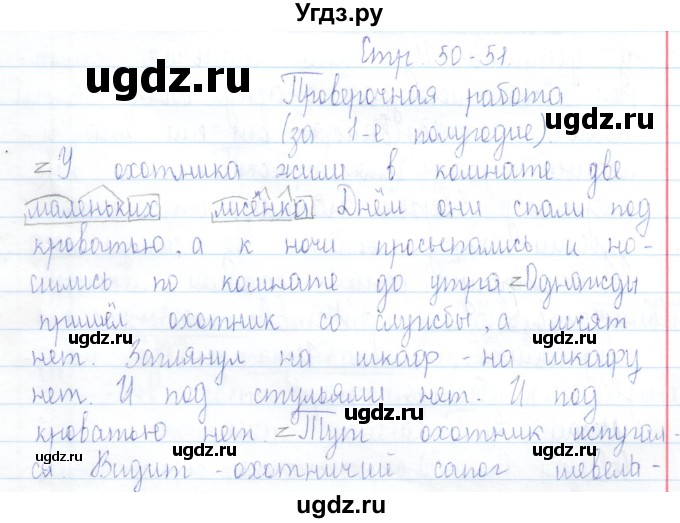 Угдз.ру
Стр. 50-51.
Проверочная работа
(за 1-е полугодие).
Z У охотника жили в комнате две
маленьких лисёнка Днём они спали под
кроватью, а к ночи просыпались и но-
сились по комнате до утра Z Однажды
пришёл охотник со службы, а лисят
нет. Заглянул на шкаф - на шкафу
нет. И под стульями нет. И под
кроватью нет Z Тут охотник испугал-
ся Видит - охотничий сапог шевель-
ugdz.ru
ugdz.ru
ugdz.ru
ugdz.ru
ugdz.ru
ugdz.ru
ugdz.ru
ugdz.ru
ugdz.ru